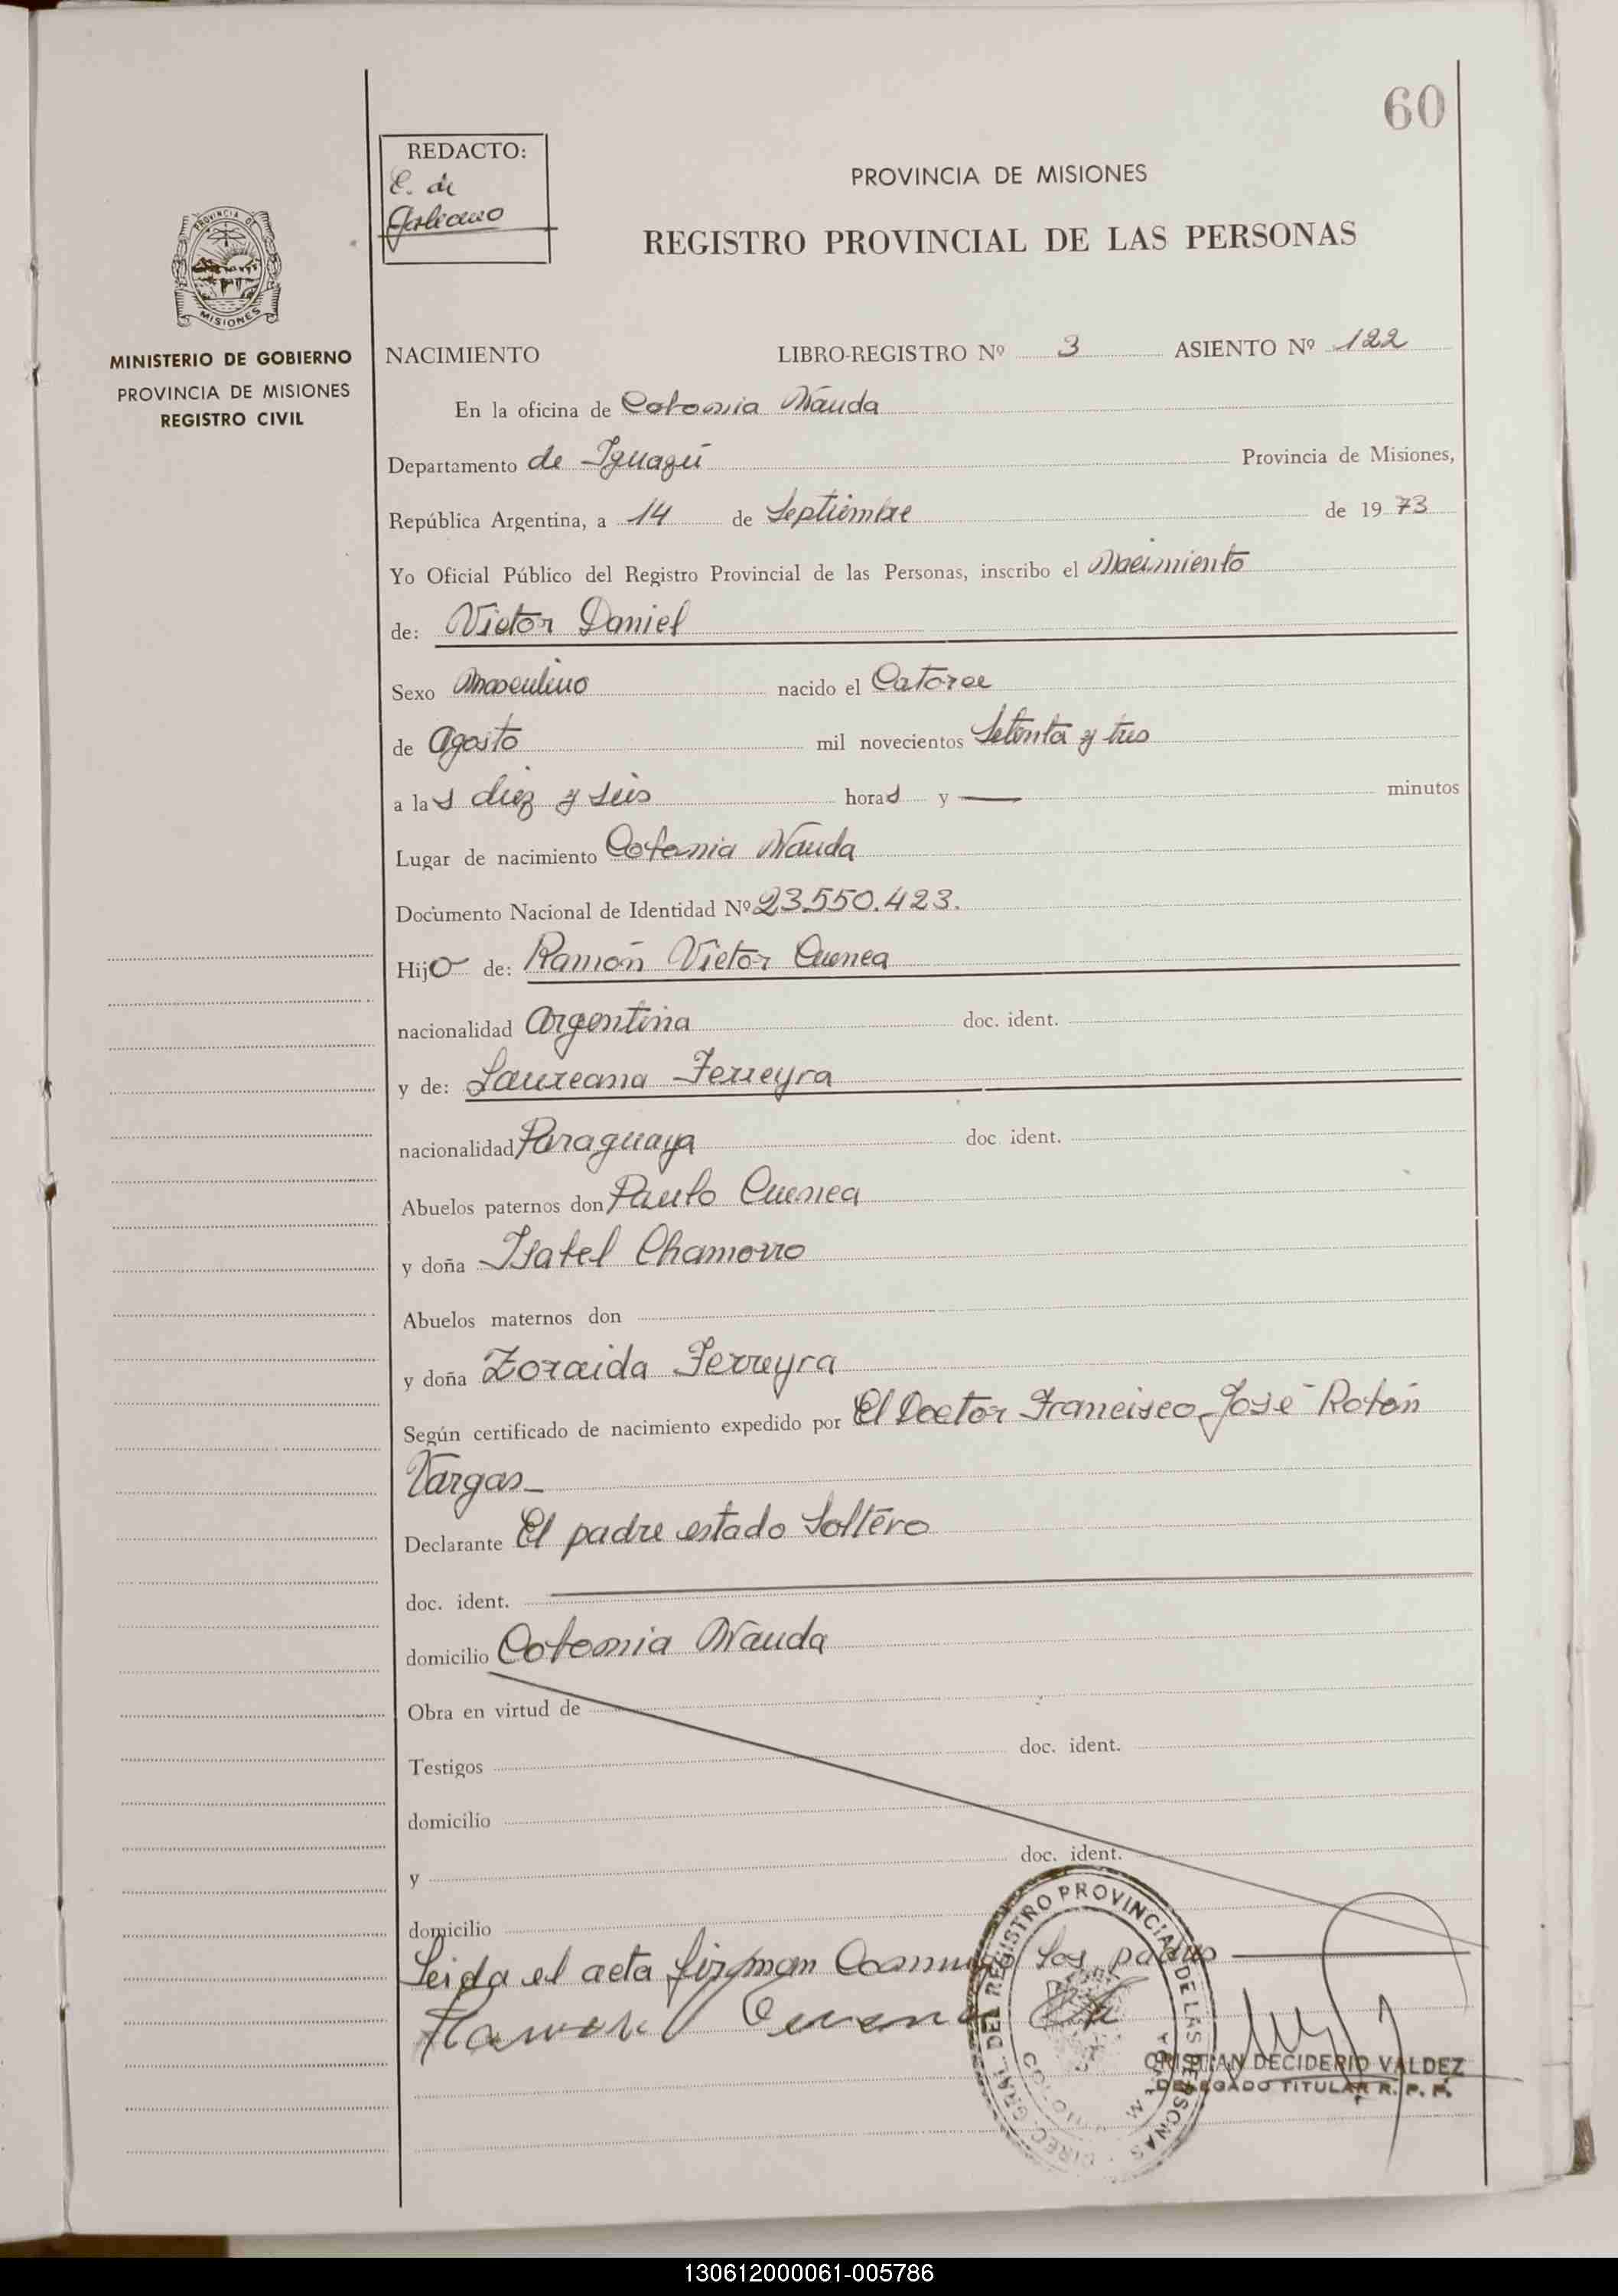 60
REDACTO:
E. de
Galeano
PROVINCIA DE MISIONES
REGISTRO PROVINCIAL DE LAS PERSONAS
PROVINCIA DE
MISIONES
MINISTERIO DE GOBIERNO
PROVINCIA DE MISIONES
REGISTRO CIVIL
NACIMIENTO LIBRO-REGISTRO Nº 3 ASIENTO Nº 122
En la oficina de Colonia Wanda
Departamento de Iguazú Provincia de Misiones,
República Argentina, a 14 de Septiembre de 1973
Yo Oficial Público del Registro Provincial de las Personas, inscribo el Nacimiento
de: Victor Daniel
Sexo Masculino nacido el Catorce
de Agosto mil novecientos Setenta y tres
a las diez y seis horas y — minutos
Lugar de nacimiento Colonia Wanda
Documento Nacional de Identidad Nº 23.550.423.
Hijo de: Ramón Victor Cuenca
nacionalidad Argentina doc. ident.
y de: Laureana Ferreyra
nacionalidad Paraguaya doc ident.
Abuelos paternos don Paulo Cuenca
y doña Isabel Chamorro
Abuelos maternos don
y doña Zoraida Ferreyra
Según certificado de nacimiento expedido por El Doctor Francisco José Rolón
Vargas_
Declarante El padre estado Soltero
doc. ident.
domicilio Colonia Wanda
Obra en virtud de
Testigos doc. ident.
domicilio
y doc. ident.
domicilio
Leida el acta firman Conmigo los padres
Ramon Cuenca
DIREC. GRAL. DEL REGISTRO PROVINCIAL DE LAS PERSONAS
CRISTIAN DECIDERIO VALDEZ
DELEGADO TITULAR R. P. P.
130612000061-005786